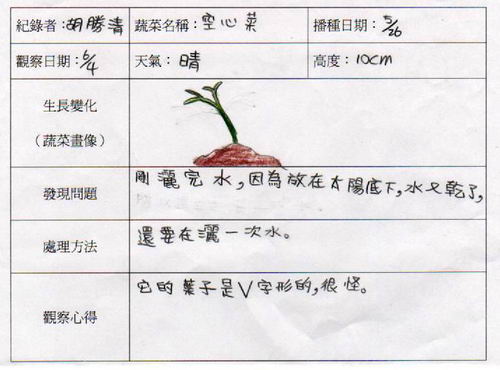 紀錄者：胡勝清 蔬菜名稱：空心菜 播種日期：5/26
觀察日期：6/4 天氣：晴 高度：10cm
生長變化
（蔬菜畫像）
發現問題 剛灑完水，因為放在太陽底下，水又乾了，
處理方法 還要在灑一次水。
觀察心得 它的葉子是V字形的，很怪。